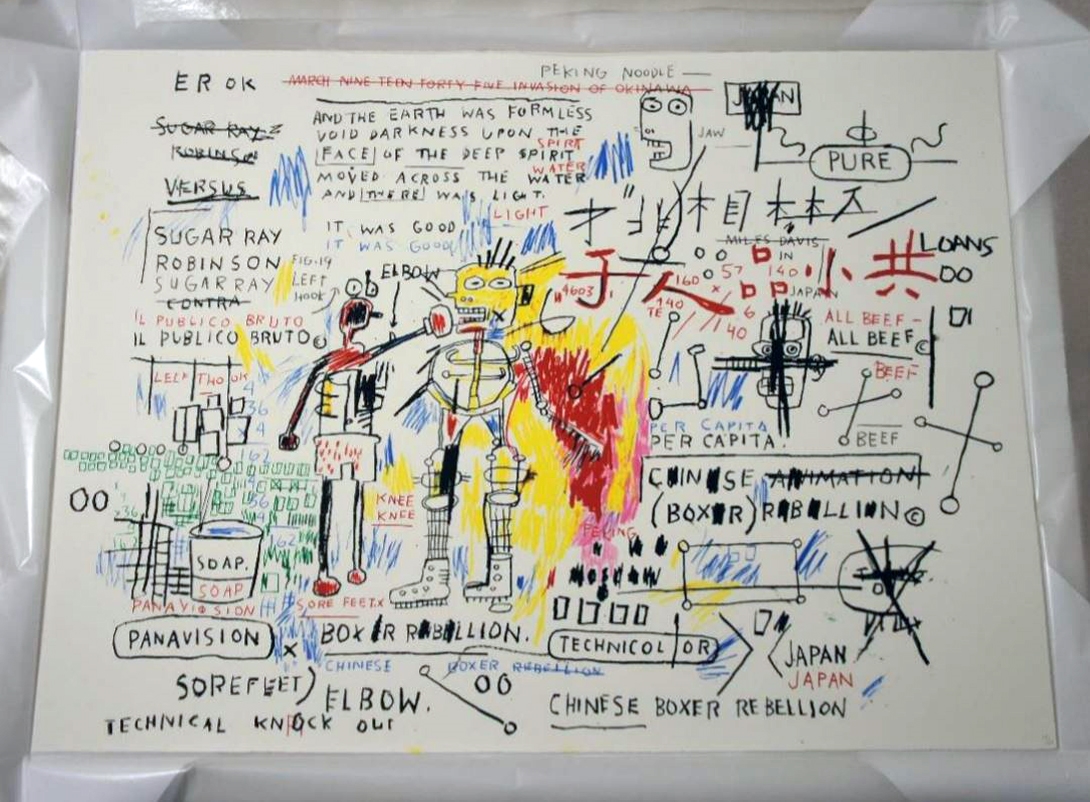 PEKING NOODLE —
EROK
MARCH NINE TEEN FORTY FIVE INVASION OF OKINAWA
SUGAR RAY
ROBINSO
VERSUS
AND THE EARTH WAS FORMLESS
VOID DARKNESS UPON THE
SPIRIT
FACE OF THE DEEP SPIRIT
WATER
MOVED ACROSS THE WATER
AND THERE WAS LIGHT.
LIGHT
JAW
JAPAN
PURE
IT WAS GOOD
IT WAS GOOD
SUGAR RAY
ROBINSON
SUGAR RAY
CONTRA
IL PUBLICO BRUTO
IL PUBLICO BRUTO©
FIG.19
LEFT
HOOK
ELBOW
MILES DAVIS
IN
JAPAN
于人品小共
"4603"
160
57
140
x
6
140
TE
40
LOANS
OO
ALL BEEF -
ALL BEEF©
BEEF
BEEF
THO
OK
4
36
4
162
PER CAPITA
PER CAPITA.
CHINESE ANIMATION
(BOXER) REBELLION©
KNEE
KNEE
PEKING
MOSCOW
OO
SOAP.
SOAP
PANAVISION
SORE FEET X
PANAVISION
x
BOXER REBELLION.
TECHNICOLOR
CHINESE BOXER REBELLION
JAPAN
JAPAN
SOREFEET)
ELBOW.
OO
CHINESE BOXER REBELLION
TECHNICAL KNOCK OUT